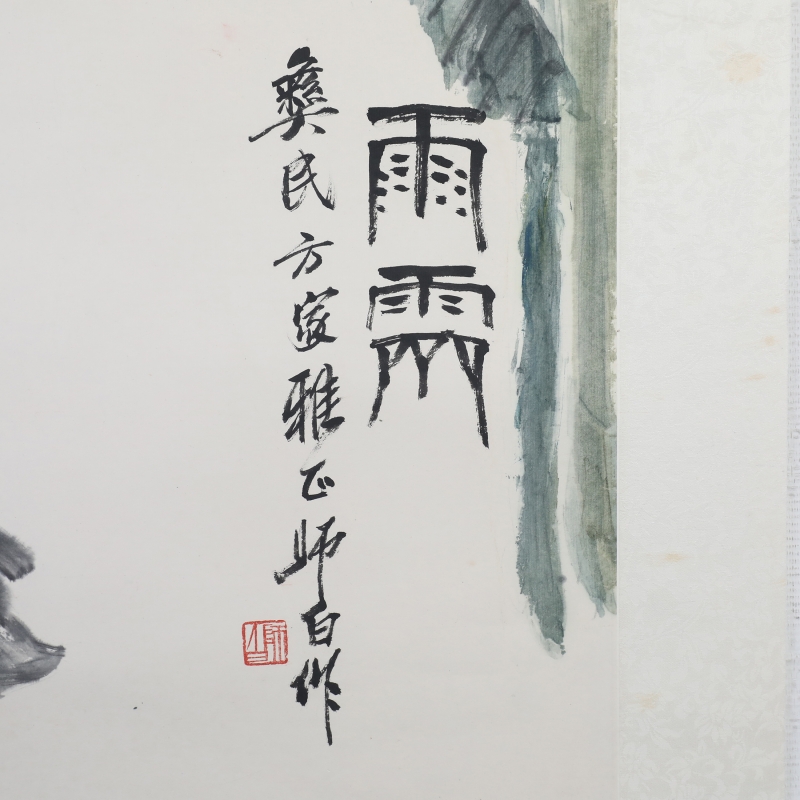 雨
彝民方家雅正师白作